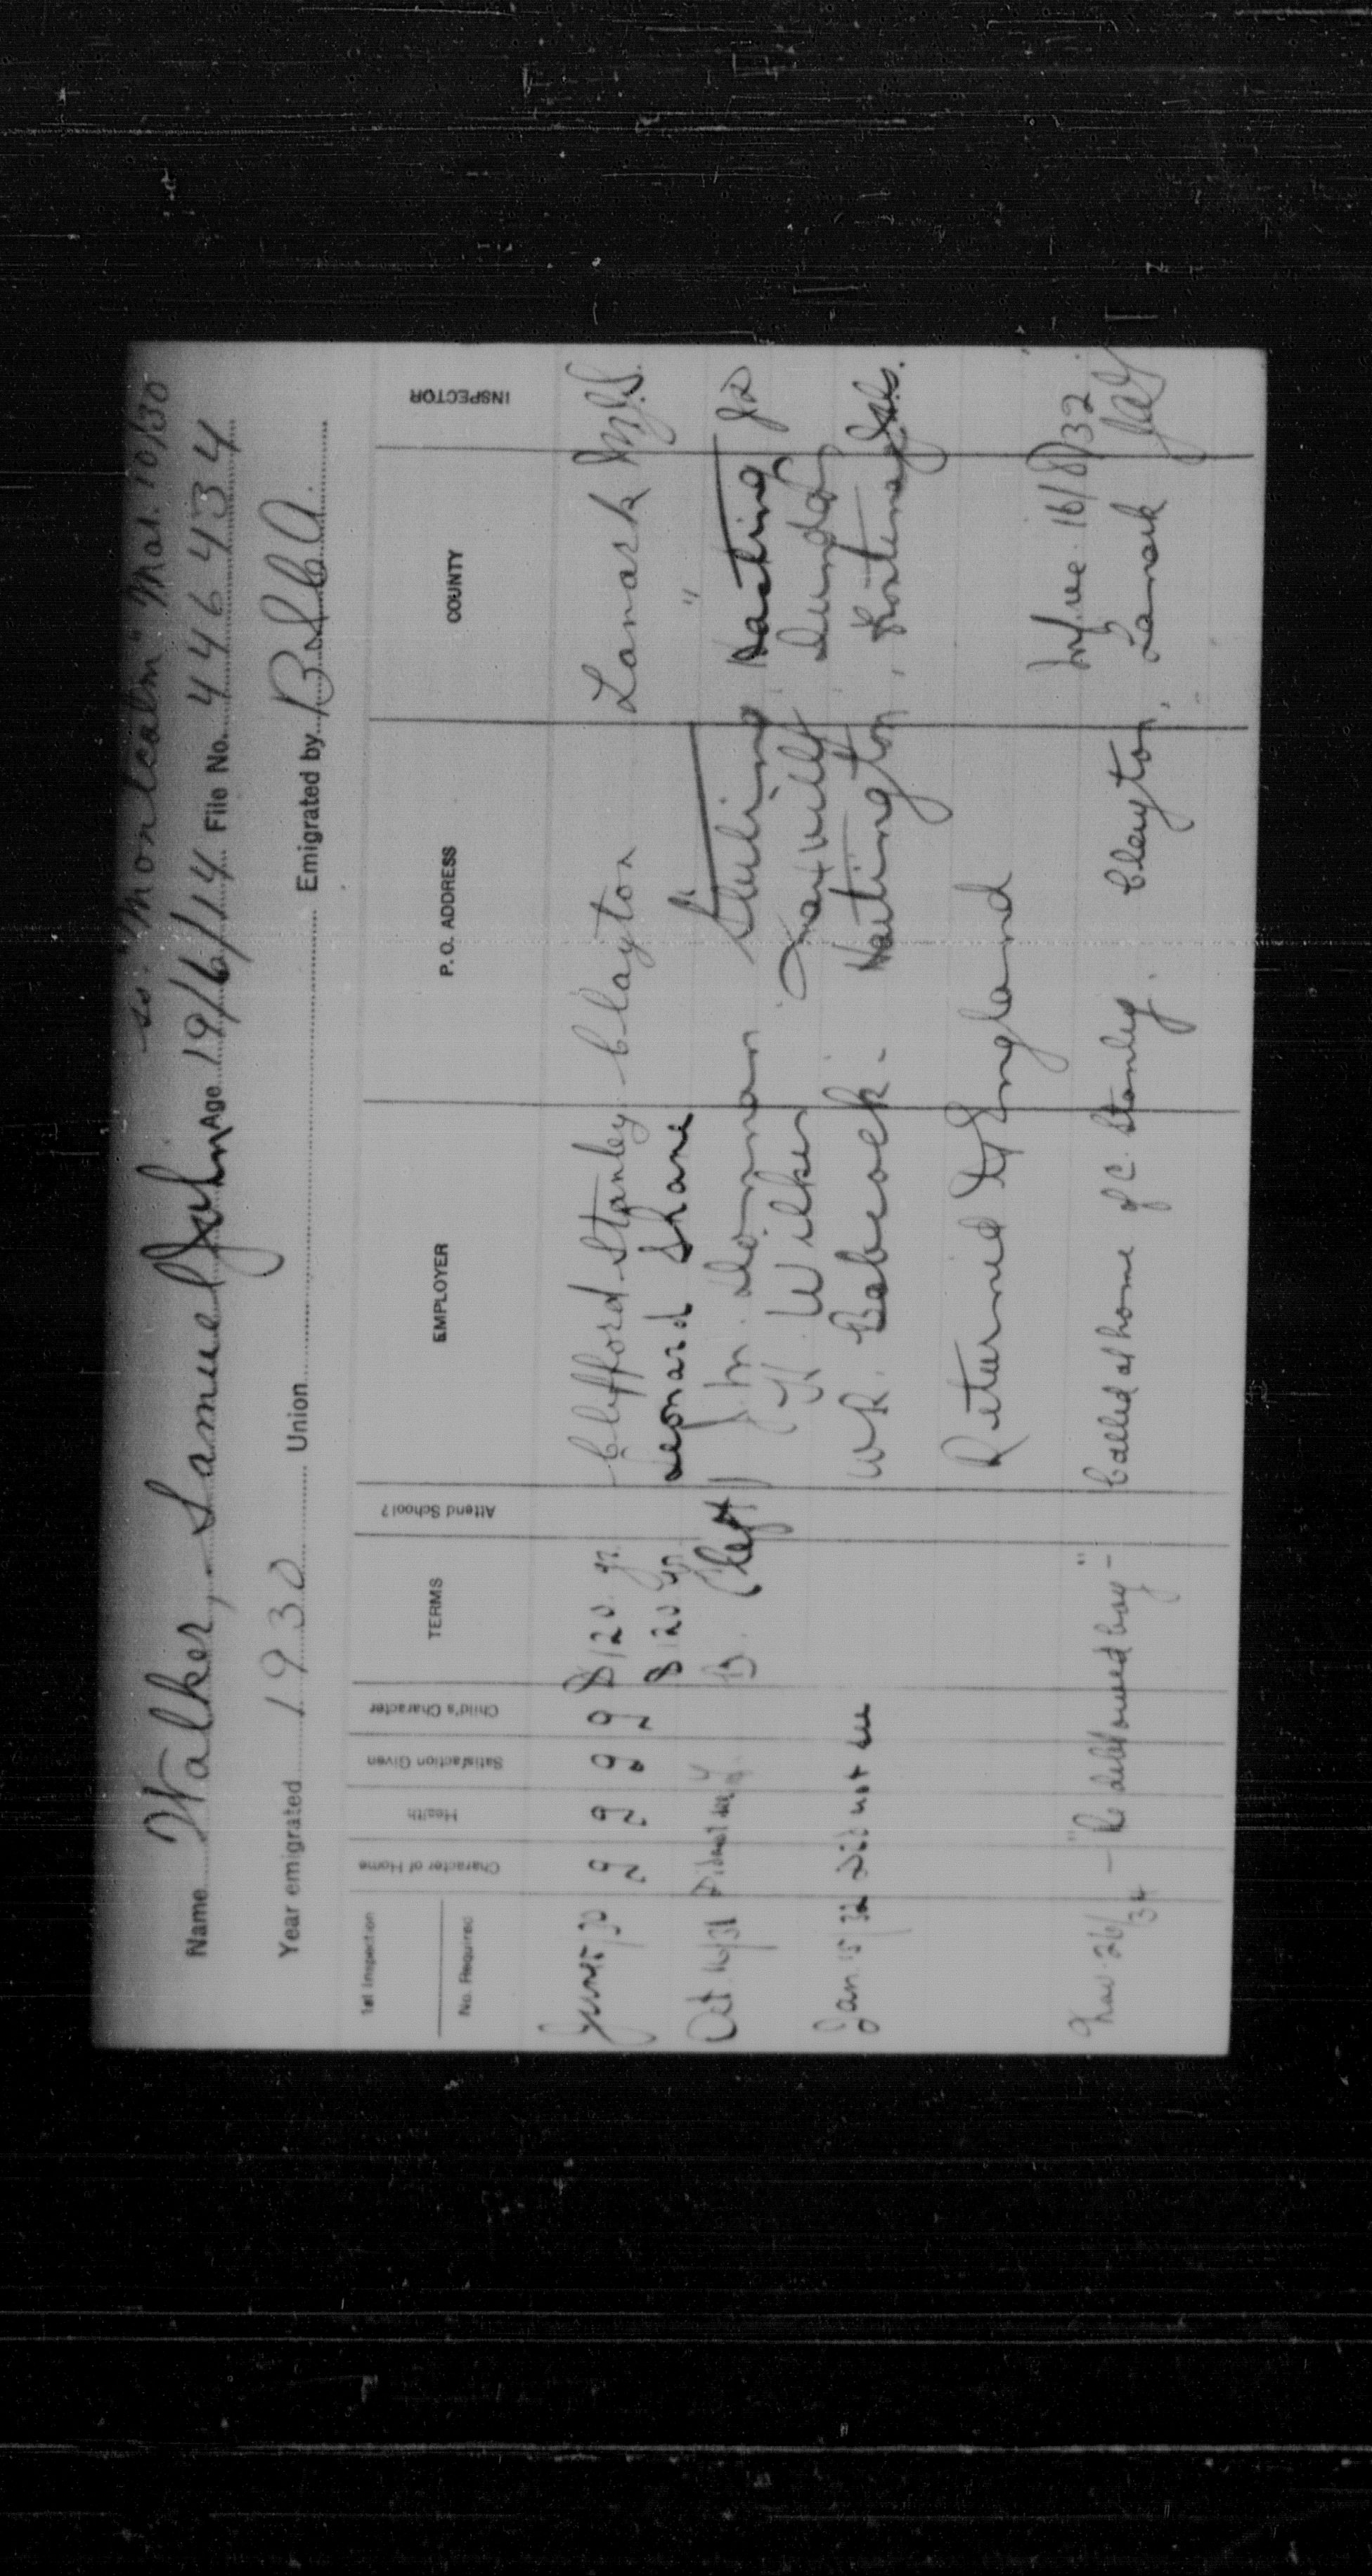 ss. "Montcalm" Mar. 10/30
Name Walker, Samuel John Age 19/6/14 File No. 446434
Year emigrated 1930 Union Emigrated by
1st Inspection
No. Required Character of Home Health Satisfaction Given Child's Character TERMS Attend School? EMPLOYER P. O. ADDRESS COUNTY INSPECTOR
June 5/30 g g g g $120 yr. Clifford Stanley Clayton Lanark
$120 yr. Leonard Shane " "
Oct. 16/31 Did not see (left) Stirling Hasting
H. Wilkes Maxville Dundas
Jan. 15 32 Did not see W.R. Babcock. Hartington, Frontenac
Returned to England
16/8/32
Nov. 26/34 - "Re debt owed boy" - Called at home of C. Stanley. Clayton, Lanark